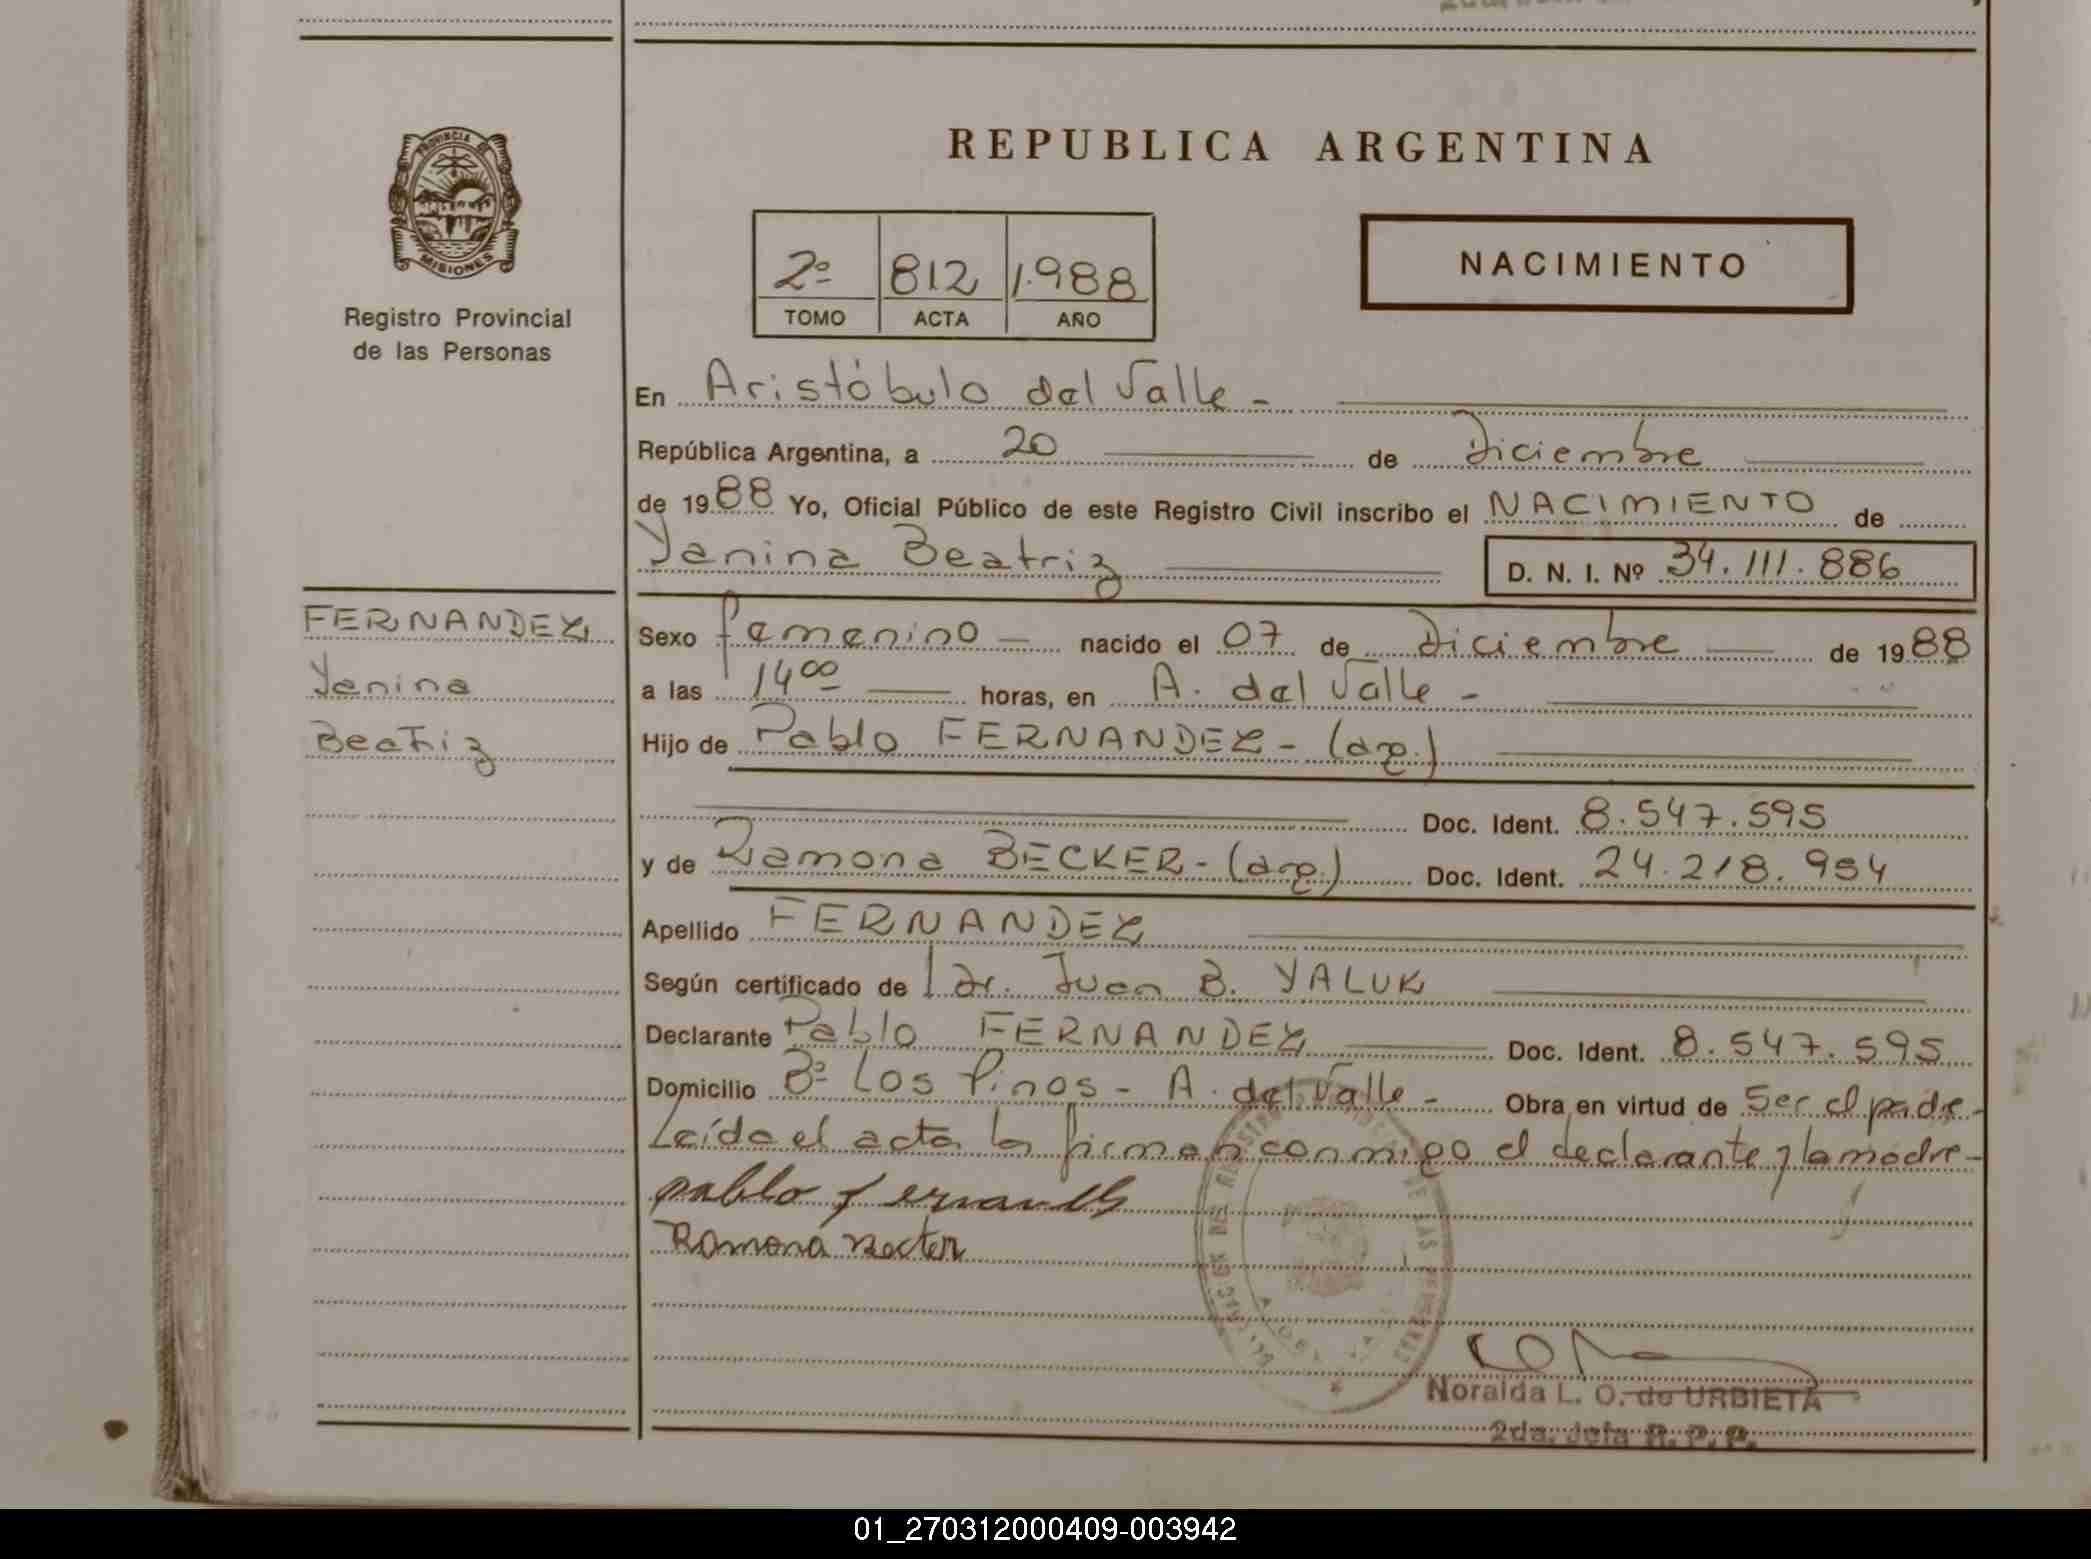 REPUBLICA ARGENTINA
PROVINCIA DE
MISIONES
Registro Provincial
de las Personas
2º 812 1.988
TOMO ACTA AÑO
NACIMIENTO
En Aristóbulo del Valle -
República Argentina, a 20 de Diciembre
de 1988 Yo, Oficial Público de este Registro Civil inscribo el NACIMIENTO de
Yanina Beatriz D. N. I. Nº 34.111.886
FERNANDEZ
Yanina
Beatriz
Sexo femenino - nacido el 07 de Diciembre de 1988
a las 14 00 horas, en A. del Valle -
Hijo de Pablo FERNANDEZ - (arg.)
Doc. Ident. 8.547.595
y de Ramona BECKER - (arg.) Doc. Ident. 24.218.954
Apellido FERNANDEZ
Según certificado de Dr. Juan B. YALUK
Declarante Pablo FERNANDEZ Doc. Ident. 8.547.595
Domicilio Bº Los Pinos - A. del Valle - Obra en virtud de Ser el padre -
Leída el acta la firman conmigo el declarante y la madre -
pablo fernandez
Ramona Becker
Noraida L. O. de URBIETA
2da. Jefa R. P. P.
01_270312000409-003942